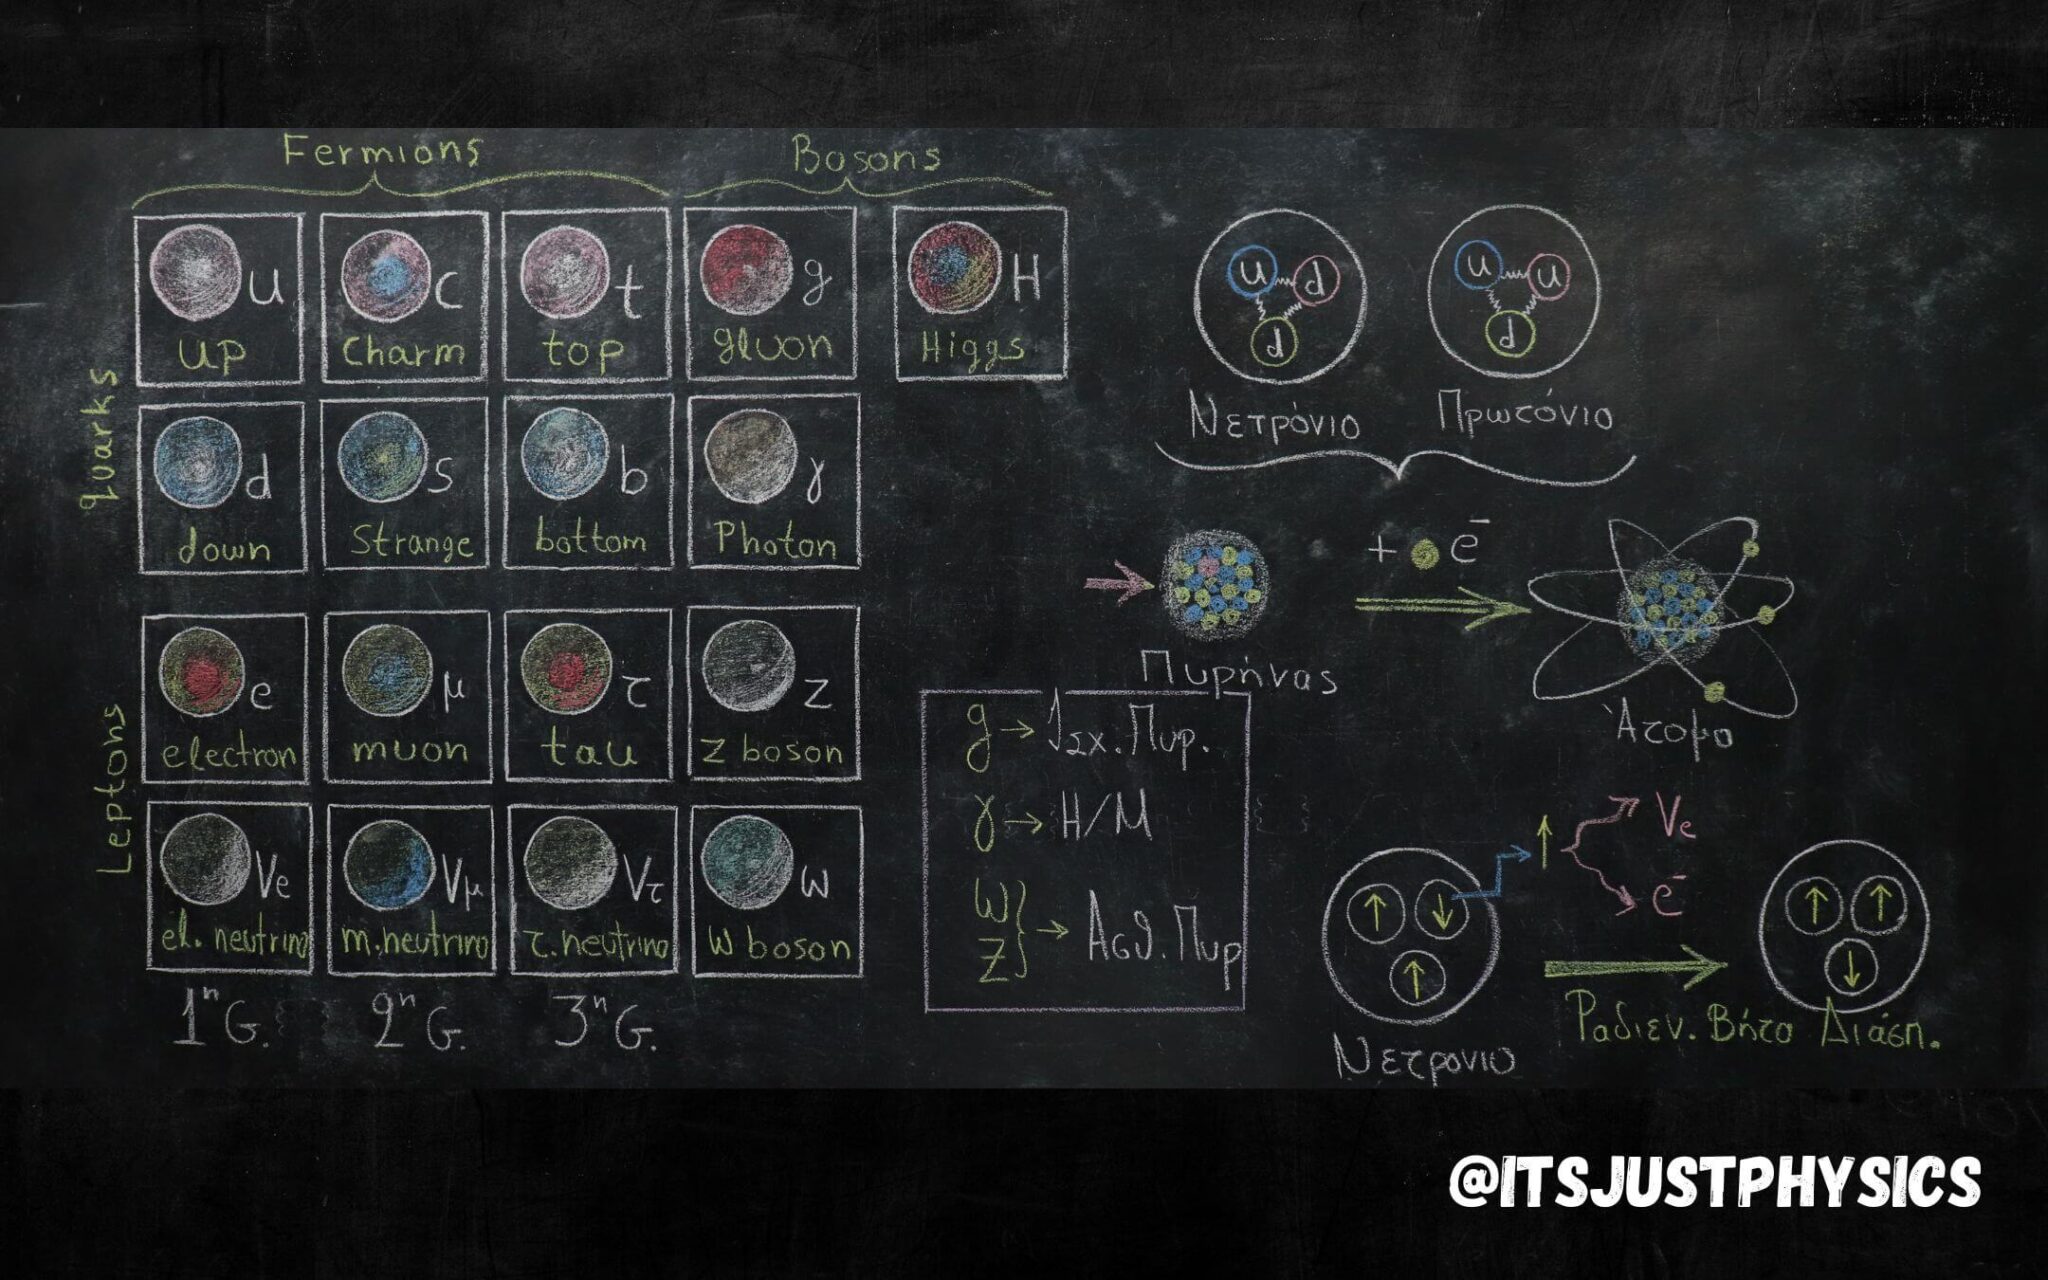 Fermions
Bosons
quarks
u
up
c
charm
t
top
g
gluon
H
Higgs
d
down
s
Strange
b
bottom
γ
Photon
Leptons
e
electron
μ
muon
τ
tau
Z
Z boson
Ve
el. neutrino
Vμ
m. neutrino
Vτ
τ. neutrino
W
W boson
1η G.
2η G.
3η G.
u d
d
Νετρόνιο
u u
d
Πρωτόνιο
+ e-
Πυρήνας
Άτομο
g → Ισχ. Πυρ.
γ → Η/Μ
W
Z } → Ασθ. Πυρ
↑ ↓
↑
Νετρονιο
↑
Ve
e-
Ραδιεν. Βήτα Διάσπ.
↑ ↑
↓
@ITSJUSTPHYSICS